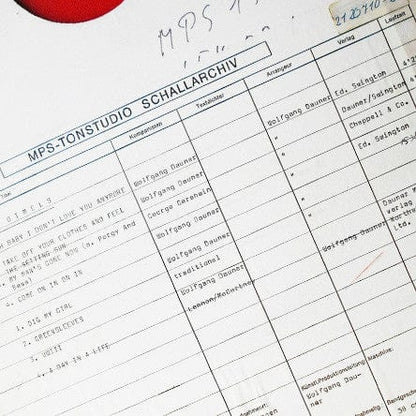 MPS
2120710-
MPS-TONSTUDIO SCHALLARCHIV
Titel Komponisten Textdichter Arrangeur Verlag Laufzeit
D I M E L S
BABY I DON'T LOVE YOU ANYMORE Wolfgang Dauner Wolfgang Dauner Ed. Swington
TAKE OFF YOUR CLOTHES AND FEEL
THE SETTING SUN Wolfgang Dauner " Dauner/Swington
MY MAN'S GONE NOW (a. Porgy And
Bess) George Gershwin " Chappell & Co.
4. COME ON IN ON IN Wolfgang Dauner " Ed. Swington
1. DIG MY GIRL Wolfgang Dauner "
2. GREENSLEEVES traditional " Dauner
verlag
3. UOIIE Wolfgang Dauner
4. A DAY IN A LIFE Lennon/McCartney Wolfgang Dauner Ltd.
Künstl.Produktionsleitung
Wolfgang Dau-
ner
Maschine: